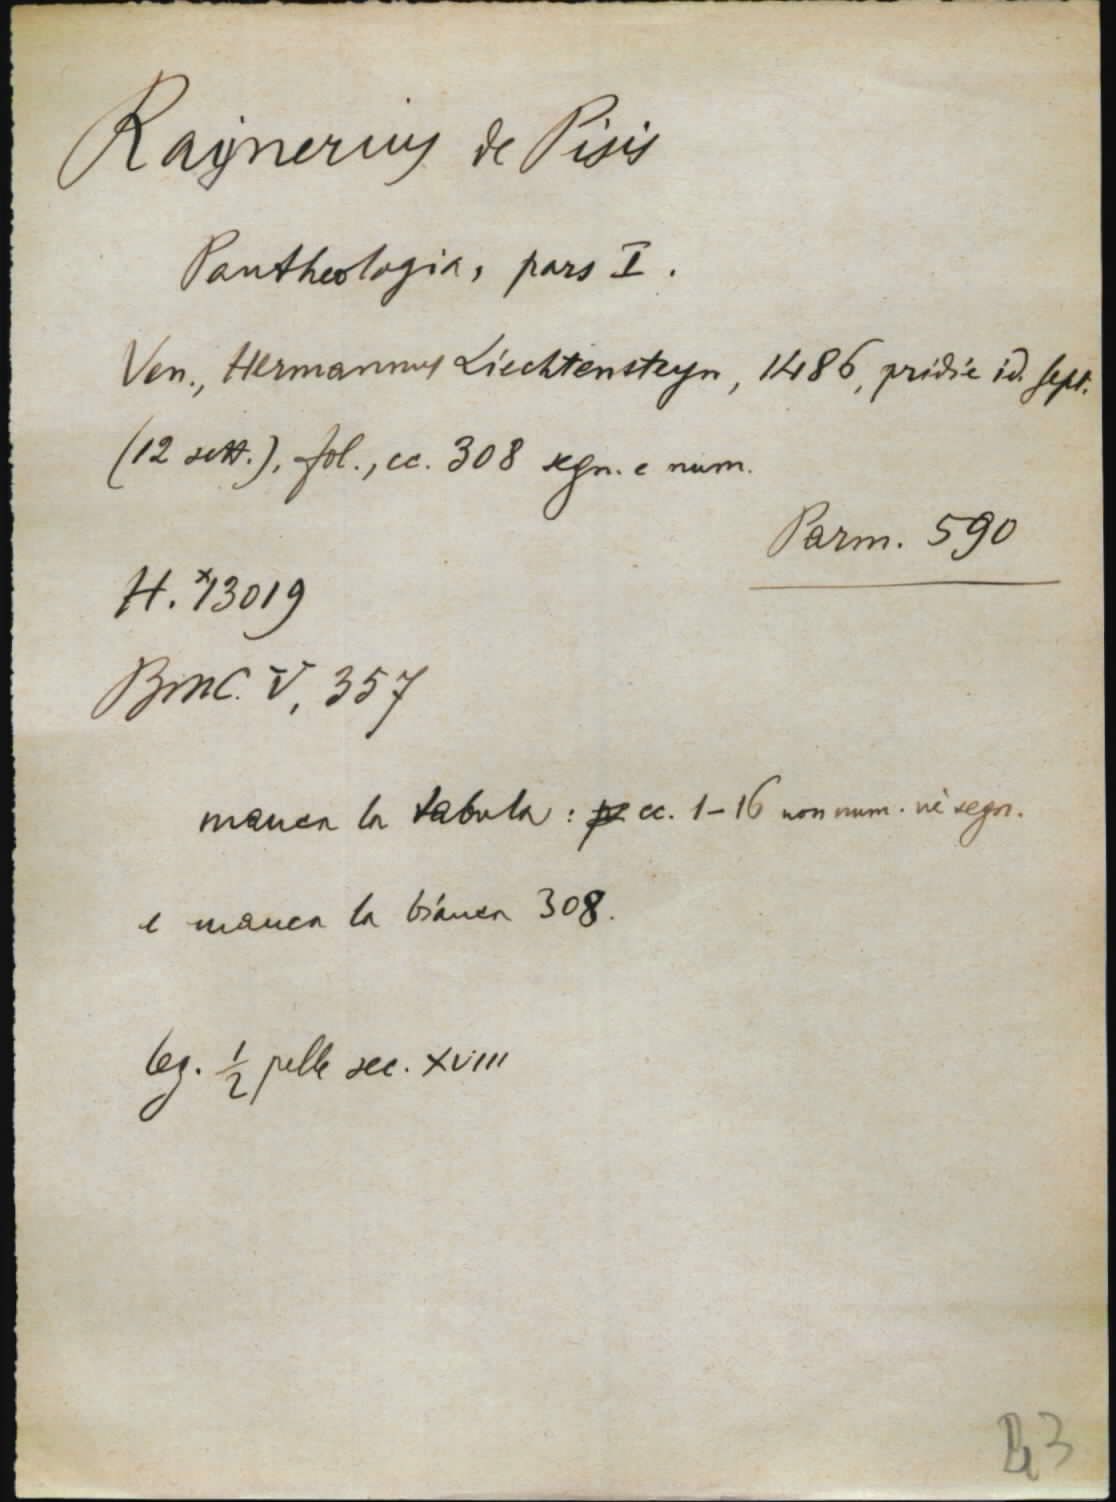 Raynerius de Pisis
Pantheologia, pars I.
Ven., Hermannus Liechtensteyn, 1486, pridie id. sept.
(12 sett.), fol., cc. 308 segn. e num.
Parm. 590
H. *13019
BMC. V, 357
manca la tabula: cc. 1-16 non num. nè segn.
e manca la bianca 308.
leg. ½ pelle sec. XVIII